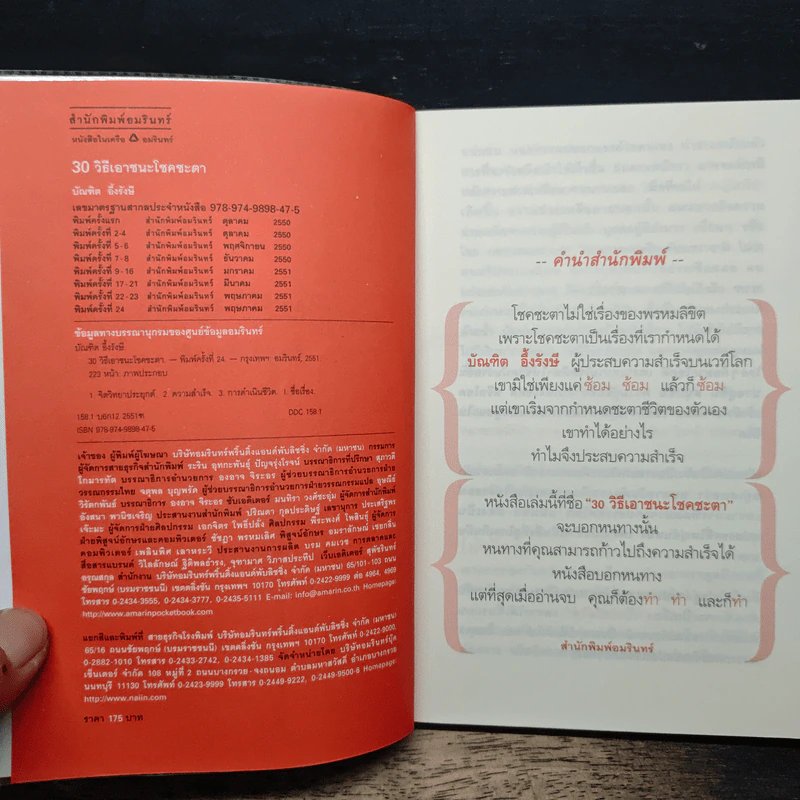 สำนักพิมพ์อมรินทร์
หนังสือในเครือ อมรินทร์
30 วิธีเอาชนะโชคชะตา
บัณฑิต อึ้งรังษี
เลขมาตรฐานสากลประจำหนังสือ 978-974-9898-47-5
พิมพ์ครั้งแรก สำนักพิมพ์อมรินทร์ ตุลาคม 2550
พิมพ์ครั้งที่ 2-4 สำนักพิมพ์อมรินทร์ ตุลาคม 2550
พิมพ์ครั้งที่ 5-6 สำนักพิมพ์อมรินทร์ พฤศจิกายน 2550
พิมพ์ครั้งที่ 7-8 สำนักพิมพ์อมรินทร์ ธันวาคม 2550
พิมพ์ครั้งที่ 9-16 สำนักพิมพ์อมรินทร์ มกราคม 2551
พิมพ์ครั้งที่ 17-21 สำนักพิมพ์อมรินทร์ มีนาคม 2551
พิมพ์ครั้งที่ 22-23 สำนักพิมพ์อมรินทร์ พฤษภาคม 2551
พิมพ์ครั้งที่ 24 สำนักพิมพ์อมรินทร์ พฤษภาคม 2551
ข้อมูลทางบรรณานุกรมของศูนย์ข้อมูลอมรินทร์
บัณฑิต อึ้งรังษี.
30 วิธีเอาชนะโชคชะตา. — พิมพ์ครั้งที่ 24. — กรุงเทพฯ: อมรินทร์, 2551.
223 หน้า: ภาพประกอบ.
1. จิตวิทยาประยุกต์. 2. ความสำเร็จ. 3. การดำเนินชีวิต. I. ชื่อเรื่อง.
158.1 บ612 2551ฑ DDC 158.1
ISBN 978-974-9898-47-5
เจ้าของ ผู้พิมพ์ผู้โฆษณา บริษัทอมรินทร์พริ้นติ้งแอนด์พับลิชชิ่ง จำกัด (มหาชน) กรรมการ
ผู้จัดการสายธุรกิจสำนักพิมพ์ ระริน อุทกะพันธุ์ ปัญจรุ่งโรจน์ บรรณาธิการที่ปรึกษา สุภาวดี
โกมารทัต บรรณาธิการอำนวยการ องอาจ จิระอร ผู้ช่วยบรรณาธิการอำนวยการฝ่าย
วรรณกรรมไทย จตุพล บุญพรัด ผู้ช่วยบรรณาธิการอำนวยการฝ่ายวรรณกรรมแปล
บรรณาธิการ องอาจ จิระอร ซับเอดิเตอร์ มนทิรา วงศ์ชะอุ่ม ผู้จัดการสำนักพิมพ์
อังสนา ประสานงานสำนักพิมพ์ ปริณดา เลขานุการ
ผู้จัดการฝ่ายศิลปกรรม เอกจิตร โพธิ์ปลั่ง ศิลปกรรม พีระพงศ์ โพสินธุ์ ผู้จัดการ
ฝ่ายพิสูจน์อักษรและคอมพิวเตอร์ ชัชฎา พรหมเลิศ พิสูจน์อักษร
คอมพิวเตอร์ เพลินพิศ ประสานงานการผลิต การตลาดและ
สื่อสารแบรนด์ เว็บเอดิเตอร์
สำนักงาน บริษัทอมรินทร์พริ้นติ้งแอนด์พับลิชชิ่ง จำกัด (มหาชน) 65/101-103 ถนน
ชัยพฤกษ์ (บรมราชชนนี) เขตตลิ่งชัน กรุงเทพฯ 10170 โทรศัพท์ 0-2422-9999 ต่อ 4964, 4969
โทรสาร 0-2434-3555, 0-2434-3777, 0-2435-5111 E-mail: info@amarin.co.th Homepage:
http://www.amarinpocketbook.com
แยกสีและพิมพ์ที่ สายธุรกิจโรงพิมพ์ บริษัทอมรินทร์พริ้นติ้งแอนด์พับลิชชิ่ง จำกัด (มหาชน)
65/16 ถนนชัยพฤกษ์ (บรมราชชนนี) เขตตลิ่งชัน กรุงเทพฯ 10170 โทรศัพท์ 0-2422-9000,
0-2882-1010 โทรสาร 0-2433-2742, 0-2434-1385 จัดจำหน่ายโดย บริษัทอมรินทร์บุ๊ค
เซ็นเตอร์ จำกัด 108 หมู่ที่ 2 ถนนบางกรวย-จงถนอม ตำบลมหาสวัสดิ์ อำเภอบางกรวย
นนทบุรี 11130 โทรศัพท์ 0-2423-9999 โทรสาร 0-2449-9222, 0-2449-9500-6 Homepage:
http://www.naiin.com
ราคา 175 บาท
-- คำนำสำนักพิมพ์ --
โชคชะตาไม่ใช่เรื่องของพรหมลิขิต
เพราะโชคชะตาเป็นเรื่องที่เรากำหนดได้
บัณฑิต อึ้งรังษี ผู้ประสบความสำเร็จบนเวทีโลก
เขามิใช่เพียงแค่ ซ้อม ซ้อม แล้วก็ ซ้อม
แต่เขาเริ่มจากกำหนดชะตาชีวิตของตัวเอง
เขาทำได้อย่างไร
ทำไมจึงประสบความสำเร็จ
หนังสือเล่มนี้ที่ชื่อ “30 วิธีเอาชนะโชคชะตา”
จะบอกหนทางนั้น
หนทางที่คุณสามารถก้าวไปถึงความสำเร็จได้
หนังสือบอกหนทาง
แต่ที่สุดเมื่ออ่านจบ คุณก็ต้องทำ ทำ และก็ทำ
สำนักพิมพ์อมรินทร์